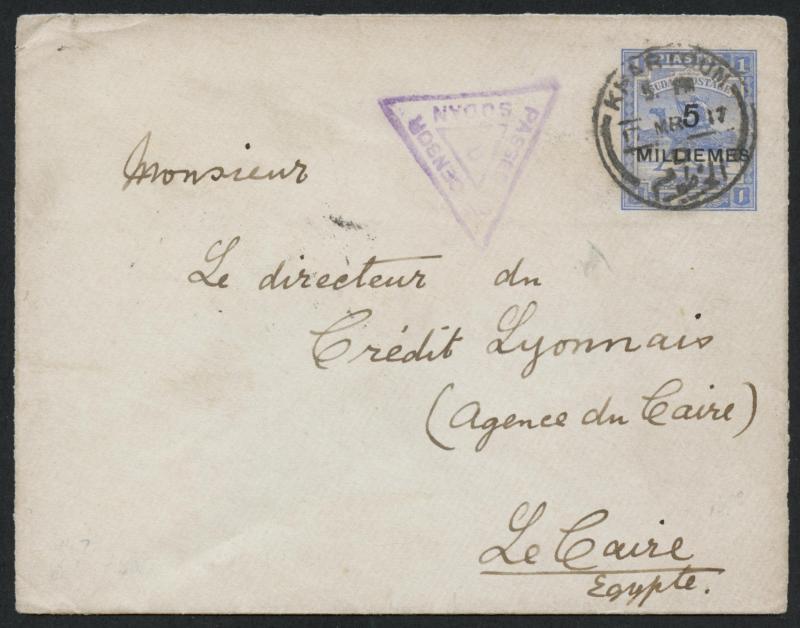 PIASTRE
1 1
SUDAN POSTAGE
KHARTOUM
MR 17
5
MILLIEMES
1 1
الخرطوم
PASSED
CENSOR
SUDAN
2
Monsieur
Le directeur du
Crédit Lyonnais
(Agence du Caire)
Le Caire
Egypte.